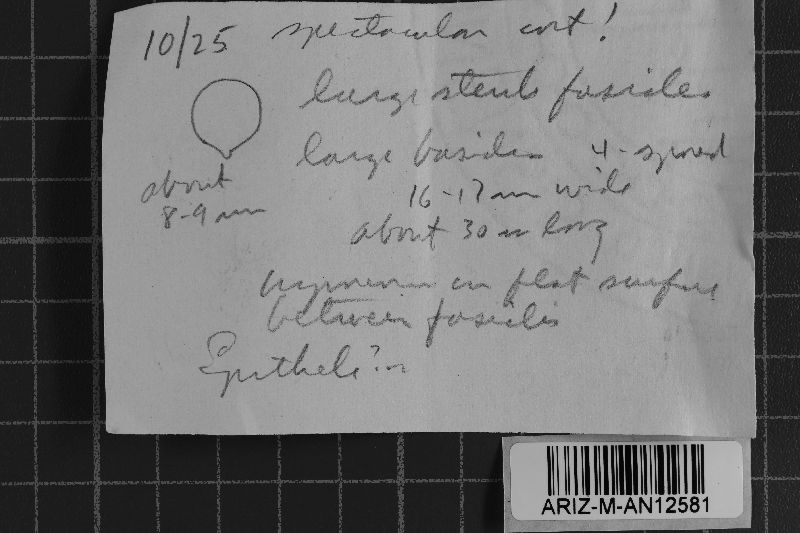 10/25 spectacular cort!
large sterile fascicles
large basidia 4-spored
about
8-9 um
16-17 um wide
about 30 u long
hymenium on flat surface
between fascicles
Epithele?
ARIZ-M-AN12581